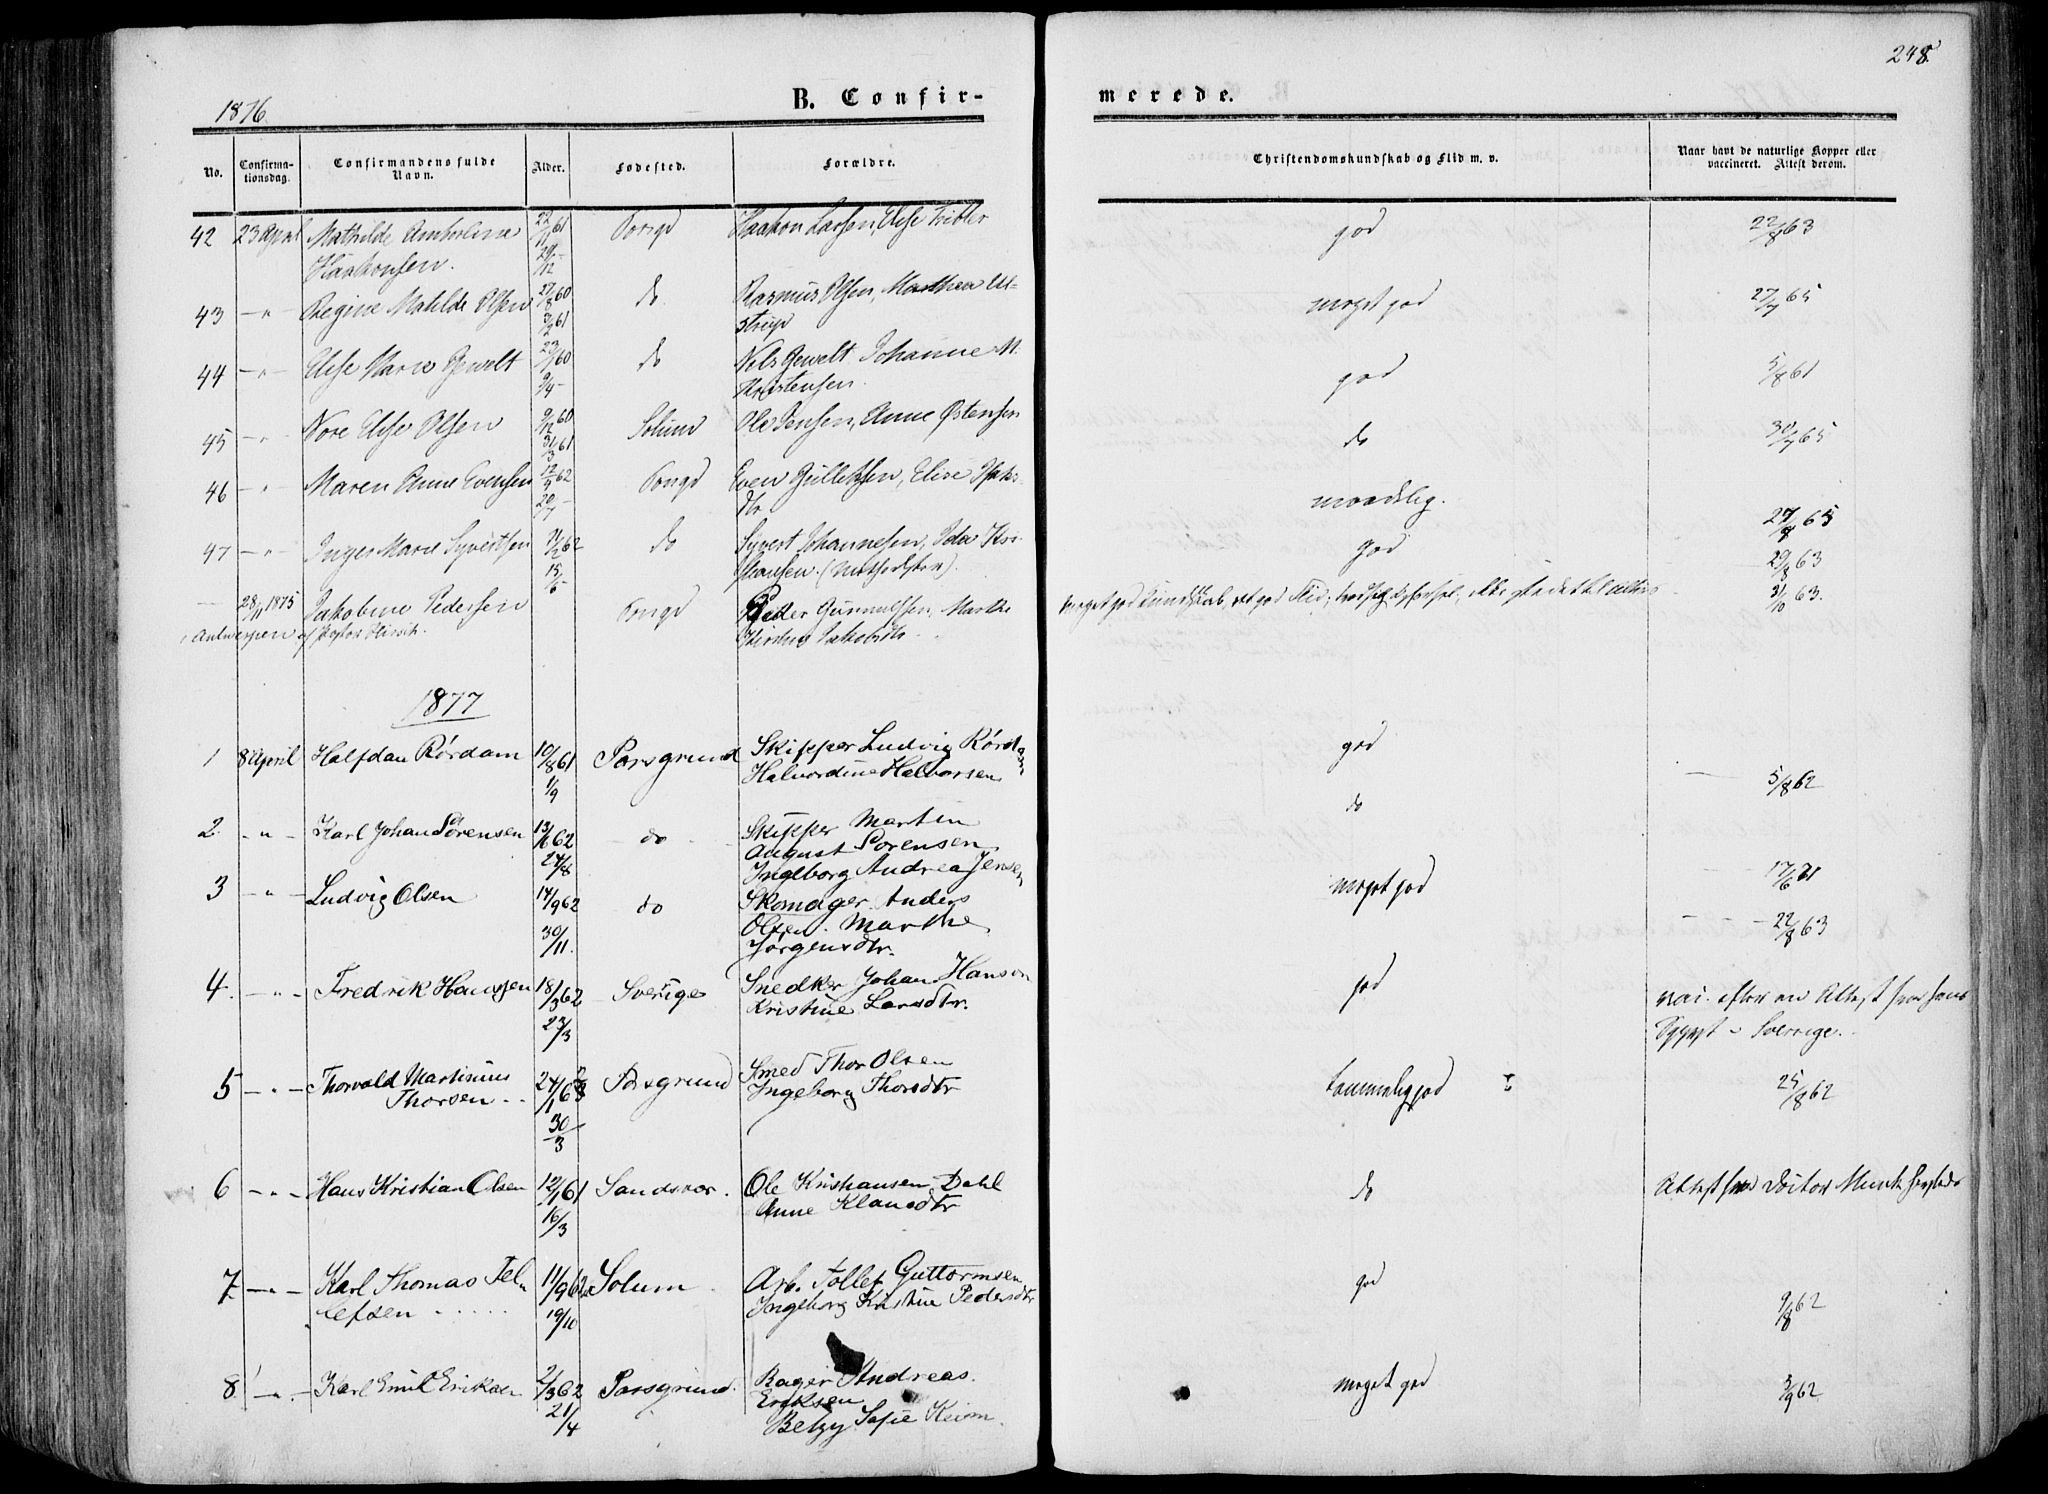 248
1876
B. Confir-
merede.
No.
Confirma-
tionsdag.
Confirmandens fulde
Navn.
Alder.
Fødested.
Forældre.
Christendomskundskab og Flid m. v.
Naar havt de naturlige Kopper eller
vaccineret. Attest derom.
42 23 April Mathilde 22/11 61 Porsgd Haakon Larsen, Else god 22/8 63
Haakonsen. 29/12 -
43 -"- Regine Matilde Olsen 27/8 60 do Rasmus Olsen, Marthea Ul- meget god 27/7 65
3/2 61 strup
44 -"- Else Marie Gewelt 23/1 60 do Nels Gewelt Johanne M. god 5/8 61
9/4 - Kristensen.
45 -"- Nore Else Olsen 9/12 60 Solum Ole Jensen, Anne Østensen do 30/7 65
31/3 61
46 -"- Maren Anne Evensen 12/4 62 Porsgd Even Gulleksen, Elise Isaks- maadelig.
20/7 - dtr
47 -"- Inger Marie Syvertsen 62 do Syvert Johannesen, Ida Kri- god 27/8 65
15/6 - stiansen. (Methodister). 29/8 63
28/11 1875 Jakobine Pedersen Porsgd Peder Gunnulfsen, Marthe meget god Kundskab, ret god Flid, 3/10 63.
i Antwerpen af Pastor Jakobsdtr
1877
1 8 April Halfdan Rørdam 10/8 61 Porsgrund Skipper Ludvig Rørdam god
1/9 Halvordine Halvorsen 5/8 62
2 -"- Karl Johan Sørensen 13/6 62 do Skipper Martin do
24/8 August Sorensen
Ingeborg Andrea Jensen
3 -"- Ludvig Olsen 14/9 62 do Skomager Anders meget god 17/6
30/11. Olsen. Marthe 22/8 63
Jørgensdtr.
4. -"- Fredrik Hansen 18/3 62 Sverige Snedker Johan Hanson god vac. efter en Attest fra hans
23/3 Kristine Larsdtr. - Sverrige.
5 -"- Thorvald Martinius 24/1 63 Porsgrund Smed Thor Olsen temmelig god 25/8 62
Thorsen 30/3 Ingeborg Thorsdtr
6 -"- Hans Kristian Olsen 12/1 61 Sandsvær. Ole Kristiansen Dahl do Attest fra Doctor Munk
16/3 Anne Klausdtr
7 -"- Karl Thomas Tel- 11/9 62 Solum Arb. Tollef Guttormsen god 9/8 62
lefsen 19/10 Ingeborg Kristine Pedersdtr
8 -"- Karl Emil Eriksen 2/3 62 Porsgrund. Bager Andreas meget god 3/9 62
21/4 Eriksen.
Betzy Sofie Keim.